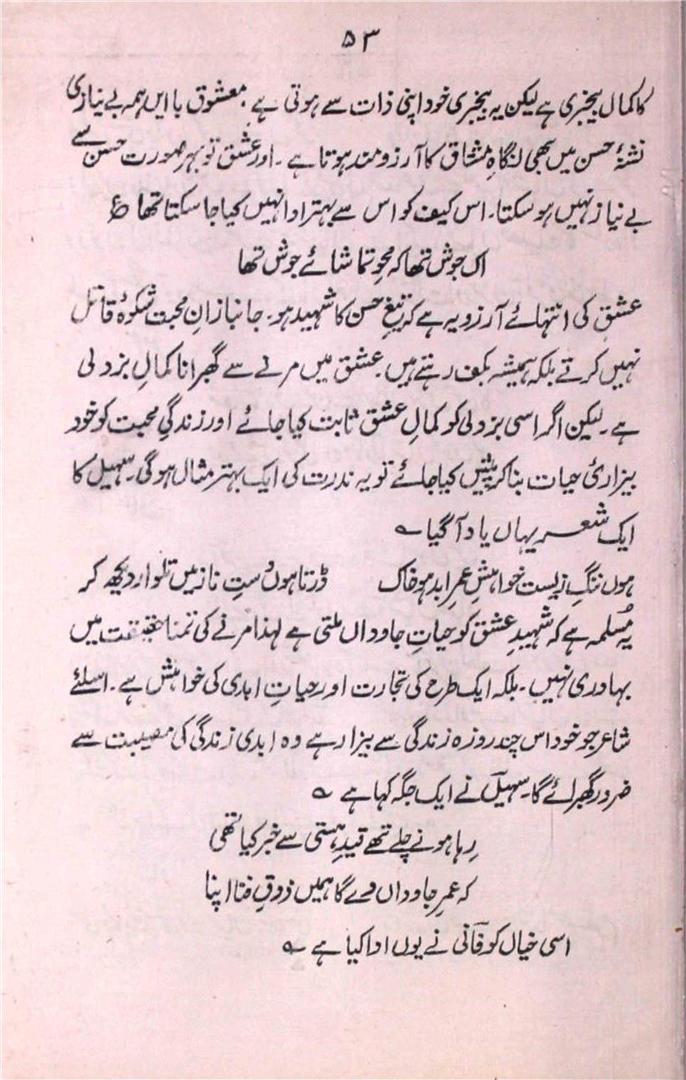 ۵۳
کا کمال بیخبری ہے لیکن یہ بیخبری خود اپنی ذات سے ہوتی ہے، معشوق باایں ہمہ بے نیازی
نشۂ حسن میں بھی نگاہِ مشتاق کا آرزومند ہوتا ہے ۔ اور عشق تو بہر صورت حسن سے
بے نیاز نہیں ہو سکتا ۔ اس کیف کو اس سے بہتر ادا نہیں کیا جا سکتا تھا ؏
اک جوش تھا کہ محوِ تماشائے جوش تھا
عشق کی انتہائے آرزو یہ ہے کہ تیغِ حسن کا شہید ہو ۔ جانبازانِ محبت شکوۂ قاتل
نہیں کرتے بلکہ ہمیشہ سر بکف رہتے ہیں ۔ عشق میں مرنے سے گھبرانا کمالِ بزدلی
ہے ۔ لیکن اگر اسی بزدلی کو کمالِ عشق ثابت کیا جائے اور زندگیِ محبت کو خود
بیزاریٔ حیات بنا کر پیش کیا جائے تو یہ ندرت کی ایک بہتر مثال ہوگی ۔ سہیل کا
ایک شعر یہاں یاد آگیا ؎
ہوں ننگِ زیست خواہشِ عمرِ ابد ہو خاک ڈرتا ہوں دستِ ناز میں تلوار دیکھ کر
یہ مُسلمہ ہے کہ شہیدِ عشق کو حیاتِ جاوداں ملتی ہے لہذا مرنے کی تمنا حقیقت میں
بہادری نہیں ۔ بلکہ ایک طرح کی تجارت اور حیاتِ ابدی کی خواہش ہے ۔ اسلئے
شاعر جو خود اس چند روزہ زندگی سے بیزار ہے وہ ابدی زندگی کی مصیبت سے
ضرور گھبرائے گا ۔ سہیلؔ نے ایک جگہ کہا ہے ؎
رِہا ہونے چلے تھے قیدِ ہستی سے خبر کیا تھی
کہ عمرِ جاوداں دے گا ہمیں ذوقِ فنا اپنا
اسی خیال کو فانیؔ نے یوں ادا کیا ہے ؎